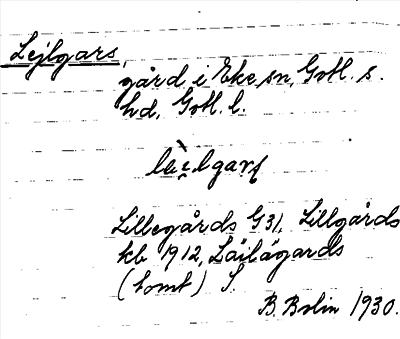 Lejlgars,
gård i Eke sn, Gotl. s.
hd, Gotl. l.
Lillegårds G31, Lillgårds
kb 1912, Läilägards
(tomt) S.
B. Bolin 1930.